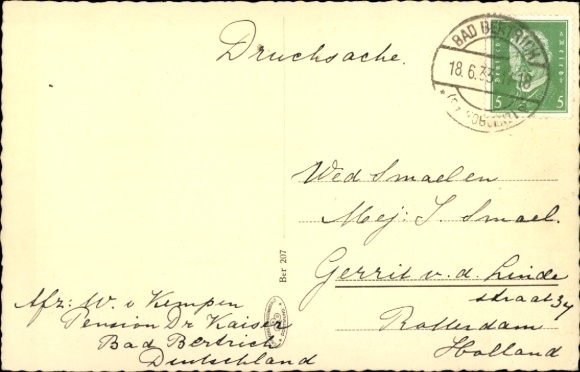 Drucksache.
BAD BERTRICH
18.6.33. 17-18
5 5
Wed Smael en
Mej: J. Smael.
Gerrit v. d. Linde
straat 34
Rotterdam
Holland
Ber 207
Afz: W. v Kempen
Pension Dr Kaiser
Bad Bertrich
Deutschland